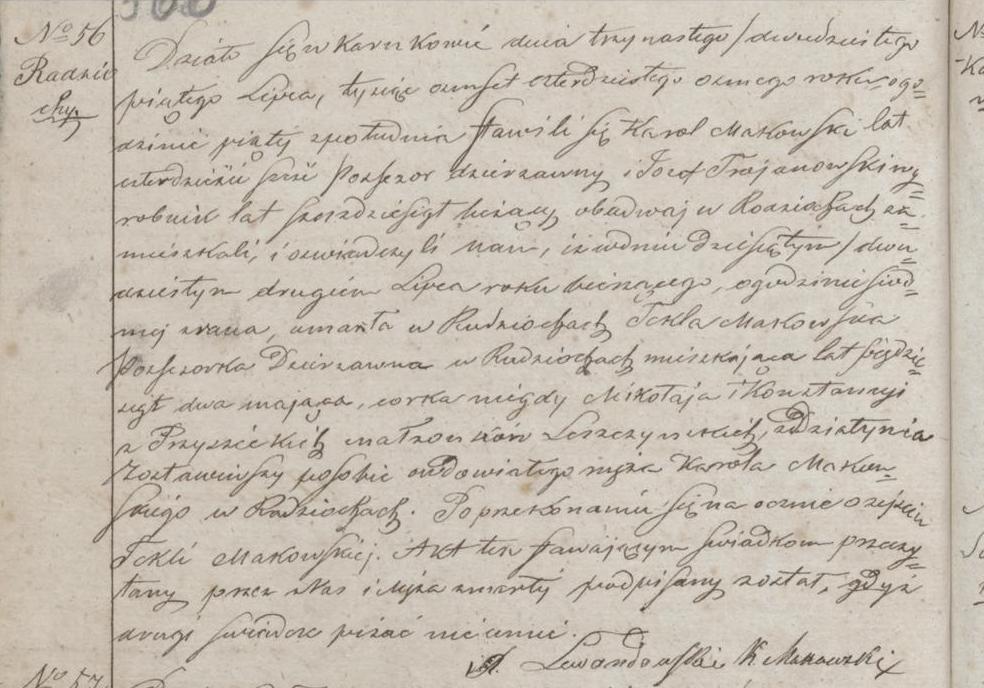 No 56
Radzio
chy.
Działo się w Karnkowie dnia trzynastego / dwudziestego
piątego Lipca, tysiąc osmset czterdziestego osmego roku o go=
dzinie piątej zpołudnia stawili się Karol Makowski lat
czterdzieści sześć Possesor dzierzawny i Jozef Trojanowski wy=
robnik lat sześdziesiąt liczący obadwaj w Radziochach za=
mieszkali, i oswiadczyli Nam, iż w dniu dziesiątym / dwu=
dziestym drugim Lipca roku bieżącego, o godzinie siód=
mej zrana, umarła w Radziochach Tekla Makowska
Possesorka Dzierzawna w Radziochach mieszkająca lat piędzie=
siąt dwa mająca, corka niegdy Mikołaja i Konstancyi
z małzonków Leszczynskich,
Zostawiwszy po sobie owdowiałego męża Karola Makow=
skiego w Radziochach. Po przekonaniu się na ocznie o zejściu
Tekli Makowskiej. Akt ten stawającym swiadkom przeczy=
tany przez Nas i Męża zmarłej podpisany został, gdyż
drugi swiadek pisać nie umie.
Lewandowski K Makowski
No 57